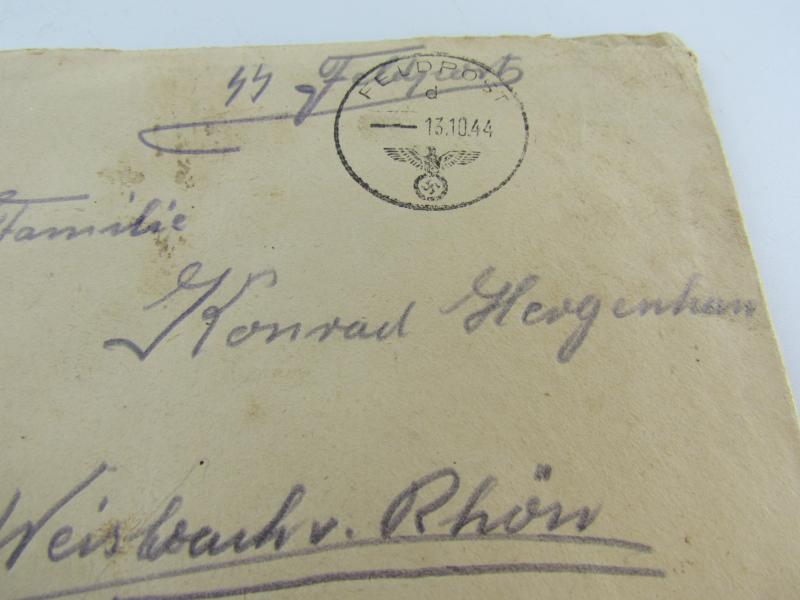 SS Feldpost
FELDPOST
d
13.10.44
Familie
Konrad Hergenhan
Weisbach v. Rhön